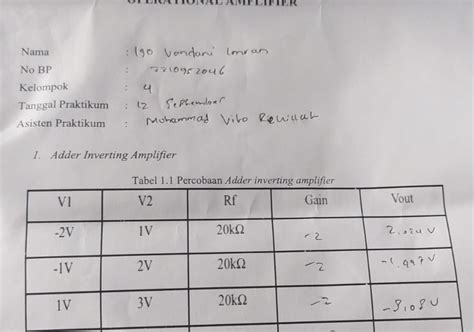 OPERATIONAL AMPLIFIER
Nama : Igo Vondani Imran
No BP : 2210952046
Kelompok : 4
Tanggal Praktikum : 12 September
Asisten Praktikum : Muhammad Vito
1. Adder Inverting Amplifier
Tabel 1.1 Percobaan Adder inverting amplifier
V1 V2 Rf Gain Vout
-2V 1V 20kΩ -2 2,024 V
-1V 2V 20kΩ -2 -1,997V
1V 3V 20kΩ -2 -8,08V